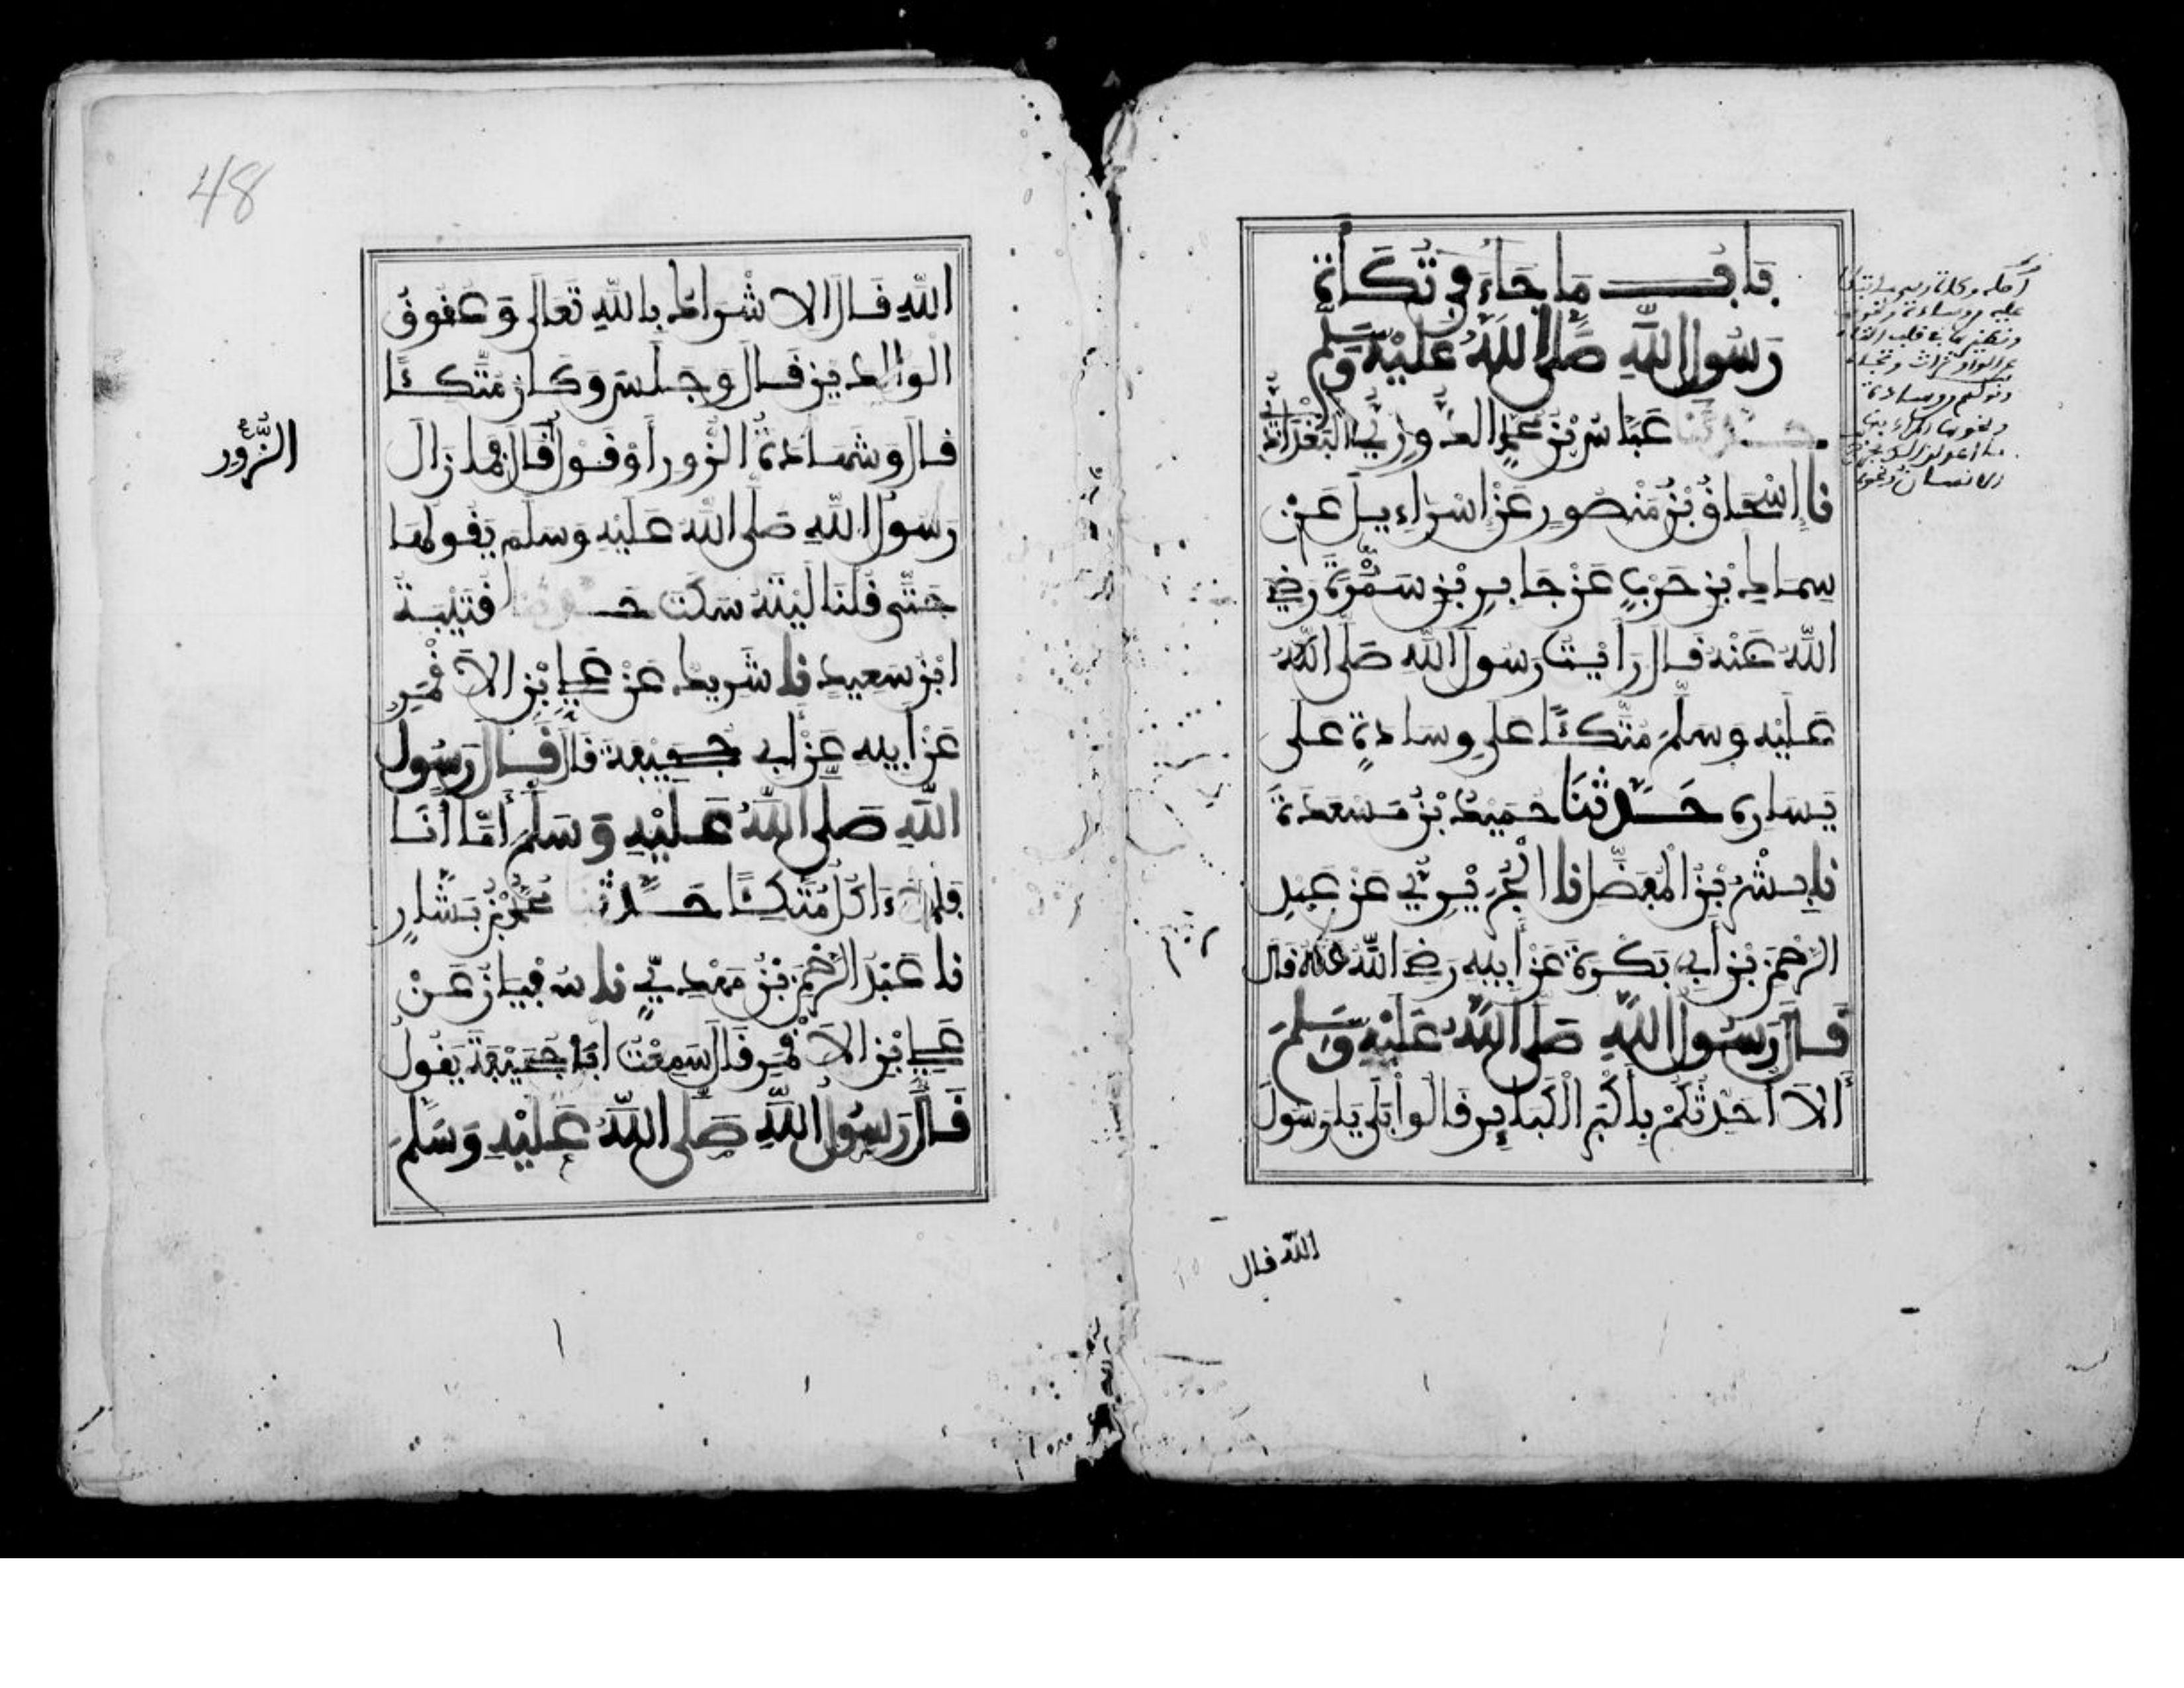 باب ما جاء في تكأة
رسول الله صلى الله عليه وسلم
حدثنا عباس بن محمد الدوري البغدادي
نا إسحاق بن منصور عن إسراءيل عن
سماك بن حرب عن جابر بن سمرة رضي
الله عنه قال رأيت رسول الله صلى الله
عليه وسلم متكئا على وسادة على
يساره حدثنا حميد بن مسعدة
نا بشر بن المفضل نا الجريري عن عبد
الرحمن بن أبي بكرة عن أبيه رضي الله عنه قال
قال رسول الله صلى الله عليه وسلم
ألا أحدثكم بأكبر الكبائر قالوا بلى يا رسول
الله قال
48
الله قال الاشراك بالله تعالى وعقوق
الوالدين قال وجلس وكان متكئا
قال وشهادة الزور أو قول قال فما زال
الزور
رسول الله صلى الله عليه وسلم يقولها
حتى قلنا ليته سكت حدثنا قتيبة
ابن سعيد نا شريك عن علي بن الاقمر
عن أبيه عن أبي جحيفة قال قال رسول
الله صلى الله عليه وسلم أما أنا
فلا ءاكل متكئا حدثنا محمد بن بشار
نا عبد الرحمن بن مهدي نا سفيان عن
علي بن الاقمر قال سمعت أبا جحيفة يقول
قال رسول الله صلى الله عليه وسلم